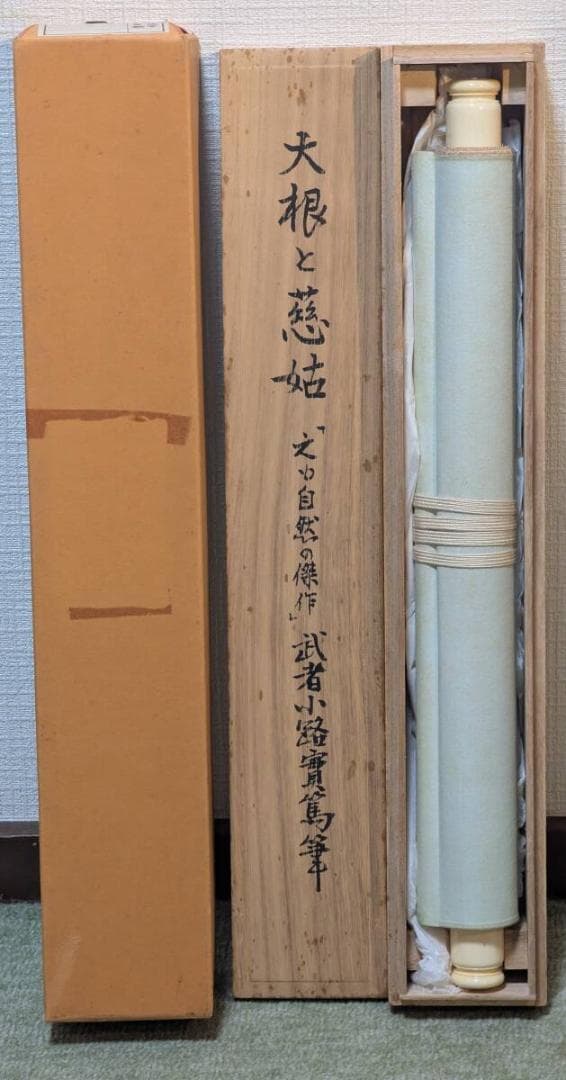 大根と慈姑「之も自然の傑作」武者小路實篤筆